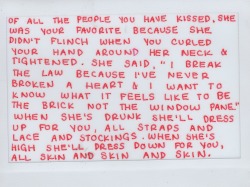 OF ALL THE PEOPLE YOU HAVE KISSED, SHE
WAS YOUR FAVORITE: BECAUSE SHE
DIDN'T FLINCH WHEN YOU CURLED
YOUR HAND AROUND HER NECK &
TIGHTENED. SHE SAID, "I BREAK
THE LAW BECAUSE I'VE NEVER
BROKEN A HEART & I WANT TO
KNOW WHAT IT FEELS LIKE TO BE
THE BRICK NOT THE WINDOW PANE."
WHEN SHE'S DRUNK SHE'LL DRESS
UP FOR YOU, ALL STRAPS AND
LACE AND STOCKINGS. WHEN SHE'S
HIGH SHE'LL DRESS DOWN FOR YOU,
ALL SKIN AND SKIN AND SKIN.